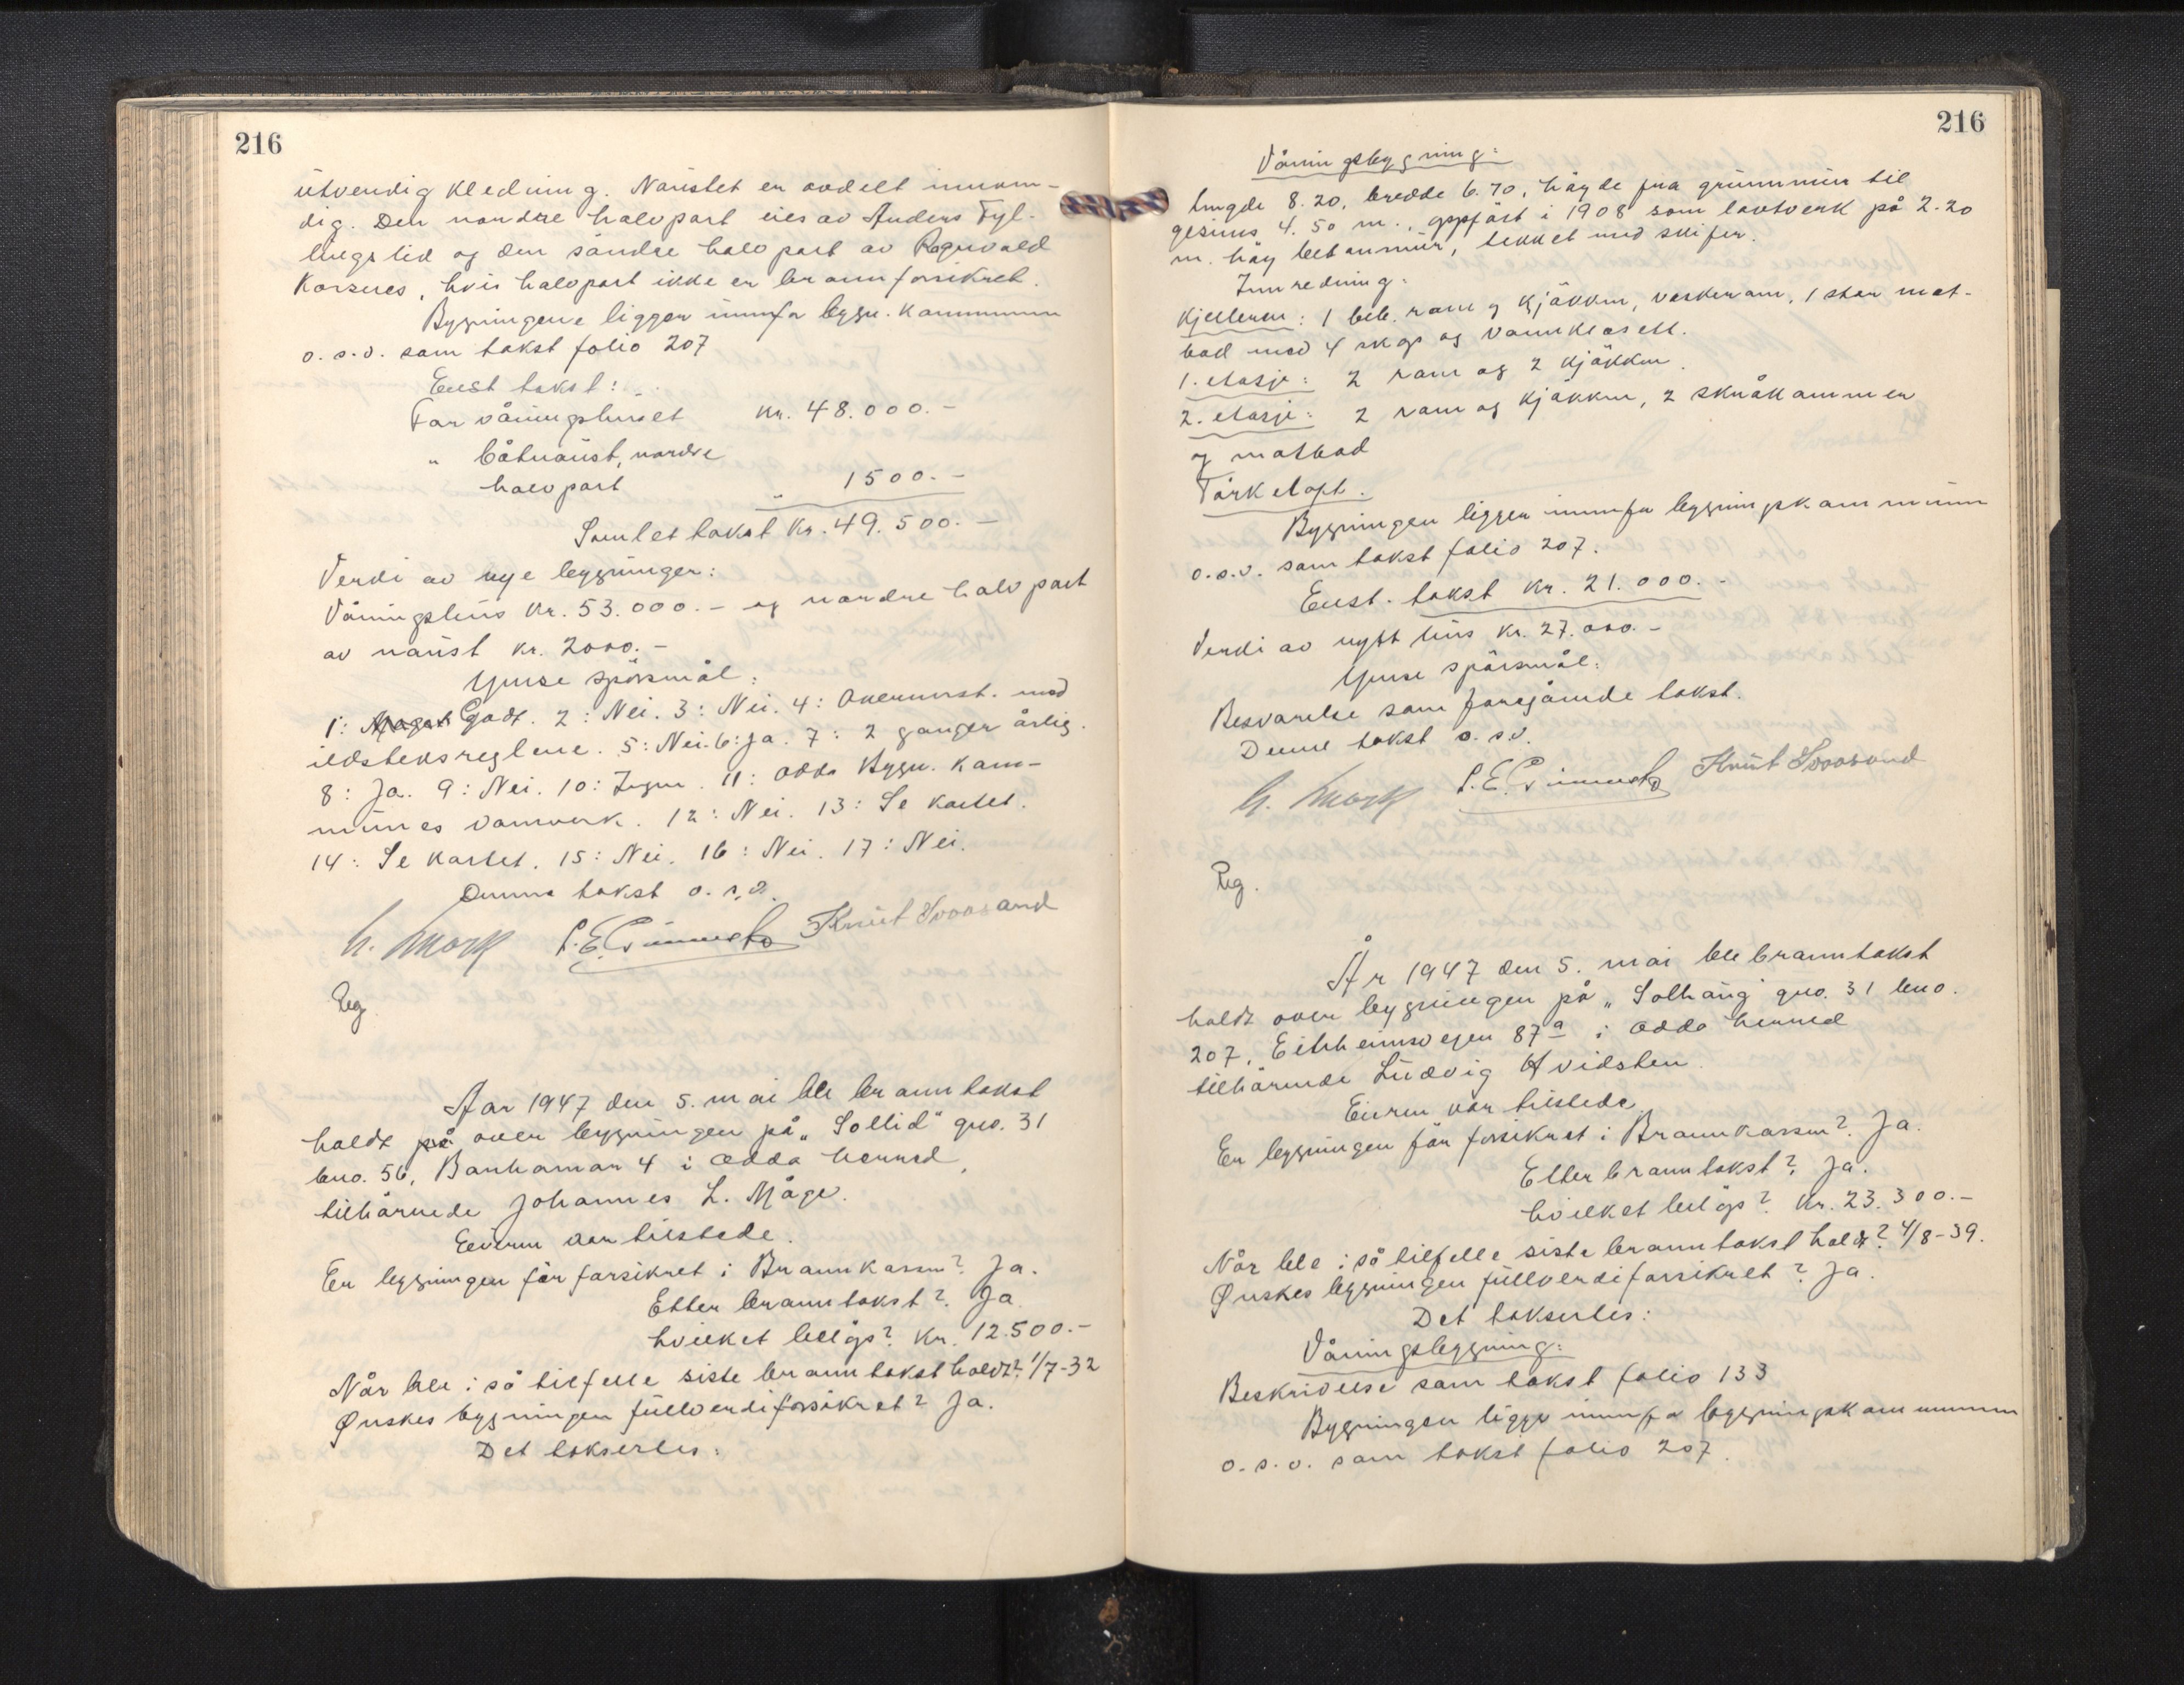 216
utvendig kledning. Naustet er avdelt innven-
dig. Den nordre halvpart eies av Anders Fyl-
lingslid og den söndre halvpart av Ragnvald
Korsnes, hvis halvpart ikke er brannforsikret.
Bygningene ligger innafor bygn. kommunen
o.s.v. som takst folio 207
Enst takst:
For våningshuset kr. 48.000.-
" båtnaust, nordre
halvpart " 1500.-
Samlet takst kr. 49.500.-
Verdi av nye bygninger:
Våningshus kr. 53.000.- og nordre halvpart
av naust kr. 2000.-
Ymse spörsmål:
1: Godt. 2: Nei. 3: Nei. 4: Overensst. med
ildstedsreglene. 5: Nei. 6: Ja. 7: 2 ganger årlig.
8: Ja. 9: Nei. 10: Ingen. 11: Odda bygn. kom-
munes vannverk. 12: Nei. 13: Se kartet.
14: Se kartet. 15: Nei. 16: Nei. 17: Nei.
Denne takst o.s.v.
h. Mork Knut
Reg
Aar 1947 den 5. mai ble branntakst
holdt på over bygningen på "Sollid" gno. 31
bno. 56, Bankamar 4 i Odda herred,
tilhörende Johannes L. Måge.
Eieren var tilstede.
Er bygningen för forsikret i Brannkassen? Ja.
Etter branntakst? Ja
hvilket belöp? Kr. 12.500.-
Når ble i så tilfelle siste branntakst holdt? 1/7-32
Ønskes bygningen fullverdiforsikret? Ja.
Det takserles:
216
Våningsbygning:
Lengde 8.20, bredde 6.70, höyde fra grunnmur til
gesims 4.50 m., oppfört i 1908 som laftverk på 2.20
m. höy betonmur, tekket med skifer.
Innredning:
Kjelleren: 1 beb. rom og kjökken, vaskerom, 1 stor mat-
bod med 4 skap og vannklosett.
1. etasje: 2 rom og 2 kjökken.
2. etasje: 2 rom og kjökken, 2 skråkammer
og matbod
Törkeloft.
Bygningen ligger innafor bygningskommunen
o.s.v. som takst folio 207.
Enst. takst kr. 21.000.-
Verdi av nytt hus kr. 27.000.-
Ymse spörsmål:
Besvarelse som foregående takst.
Denne takst o.s.v.
h. Mork Knut
Reg.
År 1947 den 5. mai ble branntakst
holdt over bygningen på "Solhaug" gno. 31 bno.
207, Eitrheimsvegen 87a i Odda herred
tilhörende Ludvig Hvidsten.
Eieren var tilstede.
Er bygningen för forsikret i Brannkassen? Ja.
Etter branntakst? Ja.
hvilket belöp? Kr. 23.300.-
Når ble i så tilfelle siste branntakst holdt? 4/8-39.
Ønskes bygningen fullverdiforsikret? Ja.
Det takserles:
Våningsbygning:
Beskrivelse som takst folio 133
Bygningen ligger innafor bygningskommunen
o.s.v. som takst folio 207.